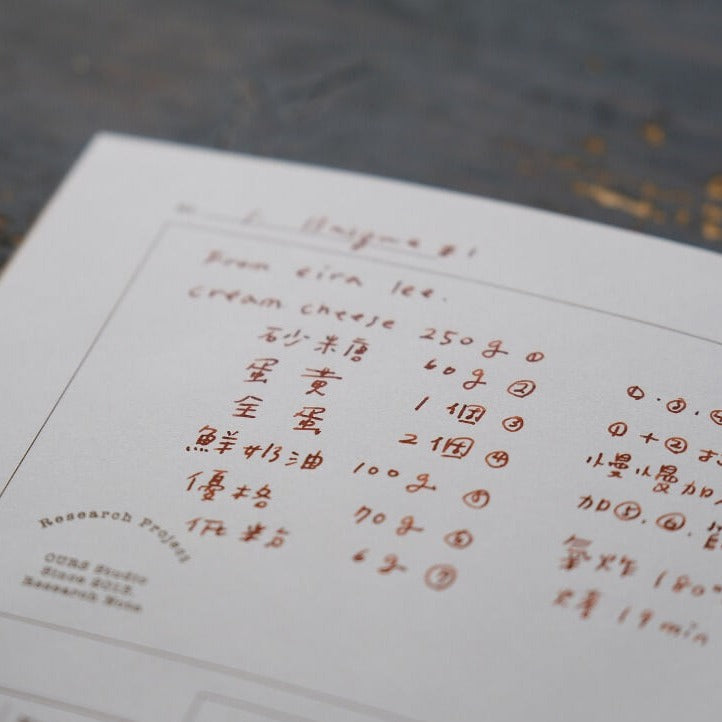 #1
From eirn lee.
cream cheese 250g ①
砂糖 60g ②
蛋黃 1個 ③
全蛋 2個 ④
鮮奶油 100g ⑤
優格 70g ⑥
低粉 6g ⑦
①.③.
①+②
慢慢加
加⑤.⑥.
氣炸 180°
烤 19min
Research Project
OURS Studio
Since 2012.
Research Note